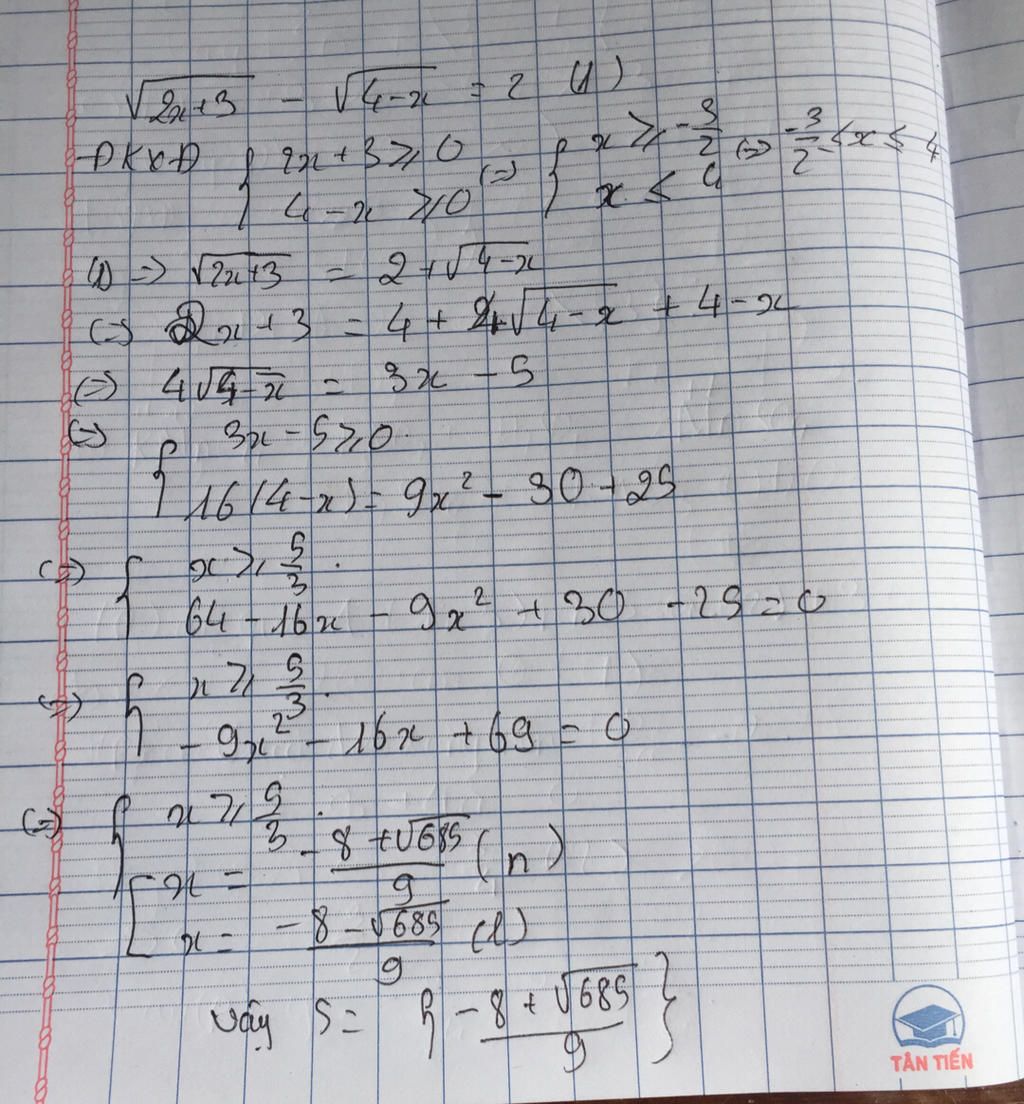 √(2x+3) - √(4-x) = 2 (1)
ĐKXĐ { 2x+3 ⩾ 0 (=) { x ⩾ -3/2 (=) -3/2 ≤ x ≤ 4
4-x ⩾ 0 x ≤ 4
(1) => √(2x+3) = 2 + √(4-x)
(=) 2x+3 = 4 + 4√(4-x) + 4-x
(=) 4√(4-x) = 3x - 5
(=) { 3x-5 ⩾ 0
16(4-x) = 9x² - 30 + 25
(=) { x ⩾ 5/3
64 - 16x - 9x² + 30 - 25 = 0
(=) { x ⩾ 5/3
-9x² - 16x + 69 = 0
(=) { x ⩾ 5/3
[ x = -8 + √685 / 9 (n)
x = -8 - √685 / 9 (l)
vậy S = { -8 + √685 / 9 }
TÂN TIẾN